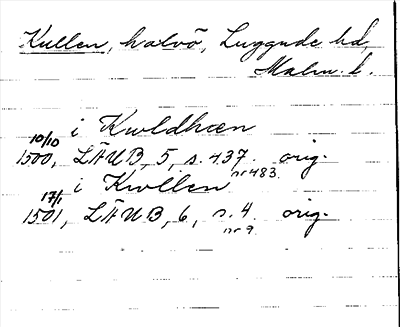 Kullen, halvö, Luggude hd,
Malm. l.
i Kwldhæn
10/10 1500, LÄUB, 5, s. 437. orig.
nr 483
i Kwllen
17/1 1501, LÄUB, 6, s. 4. orig.
nr 9